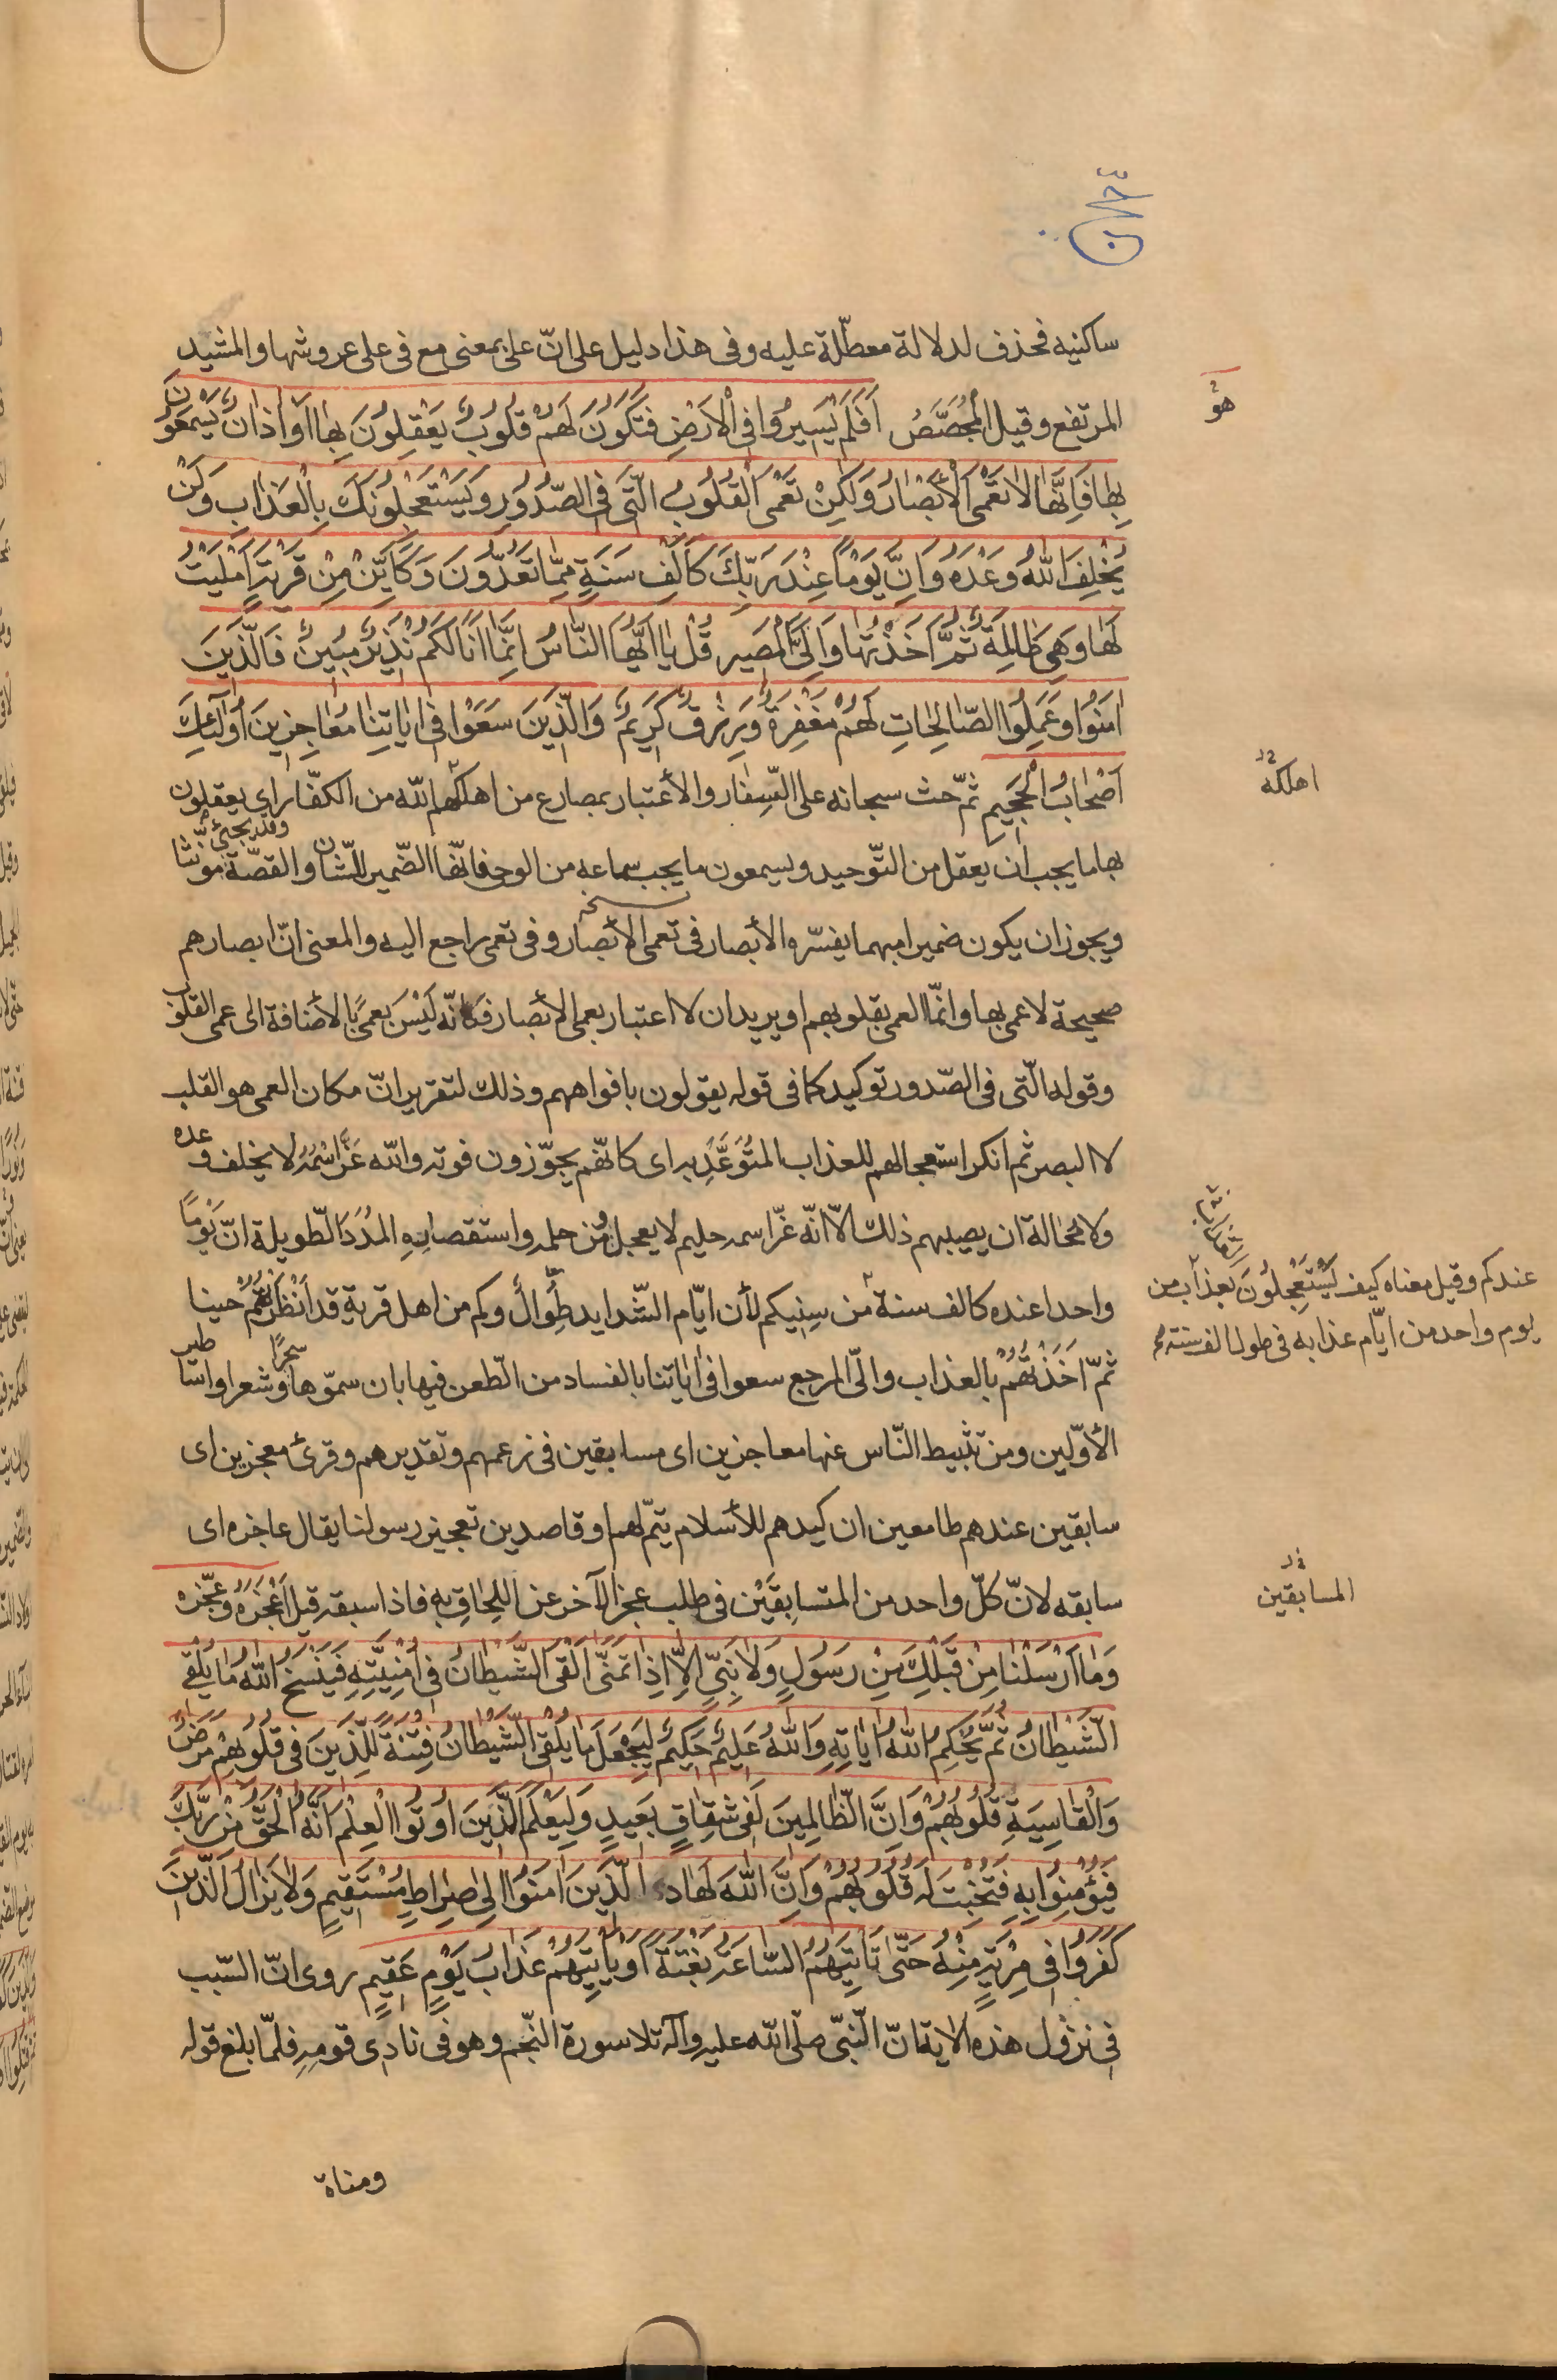 ساكنيه فحذف لدلالة معطّلة عليه وفى هذا دليل على انّ على بمعنى مع فى على عروشها والمشيد
المرتفع وقيل المُجَصَّصُ اَفَلَمْ يَسيرُوا فِى الْاَرْضِ فَتَكُونَ لَهُمْ قُلُوبٌ يَعْقِلُونَ بِها اَوْ اذانٌ يَسْمَعُونَ
بِها فَاِنَّها لا تَعْمَى الْاَبْصارُ وَلكِنْ تَعْمَى الْقُلُوبُ الَّتى فِى الصُّدُورِ وَيَسْتَعْجِلُونَكَ بِالْعَذابِ وَلَنْ
يُخْلِفَ اللهُ وَعْدَهُ وَاِنَّ يَوْماً عِنْدَ رَبِّكَ كَاَلْفِ سَنَةٍ مِمَّا تَعُدُّونَ وَكَاَيِّنْ مِنْ قَرْيَةٍ اَمْلَيْتُ
لَها وَهِىَ ظالِمَةٌ ثُمَّ اَخَذْتُها وَاِلَىَّ الْمَصيرِ قُلْ يا اَيُّهَا النَّاسُ اِنَّما اَنَا لَكُمْ نَذيرٌ مُبينٌ فَالَّذينَ
امَنُوا وَعَمِلُوا الصَّالِحاتِ لَهُمْ مَغْفِرَةٌ وَرِزْقٌ كَريمٌ وَالَّذينَ سَعَوْا فى اياتِنا مُعاجِزينَ اُولئِكَ
اَصْحابُ الْجَحيمِ ثمّ حث سبحانه على السِّفار والأعتبار بمصارع من اهلكهم الله من الكفّار اى يعقلون
بها ما يجب ان يعقل من التّوحيد ويسمعون ما يجب سماعه من الوحى فانّها الضّمير للشّان والقصّة وقد يجئ مؤنّثا
ويجوز ان يكون ضميرا مبهما يفسّره الأبصار فى تعمى الأبصار وفى تعمى راجع اليه والمعنى انّ ابصارهم
صحيحة لا عمى بها وانّما العمى بقلوبهم او يريد ان لا اعتبار بعمى الأبصار فكانّه لَيْسَ بعمًى بالأضافة الى عمى القلوب
وقوله الّتى فى الصّدور توكيد كما فى قوله يقولون بافواههم وذلك لتقرير انّ مكان العمى هو القلب
لا البصر ثم انكر استعجالهم للعذاب المُتَوَعَّدِ به اى كانّهم يجوّزون فوته والله عَزَّ اسْمُهُ لا يخلف وعده
ولا مُحالة ان يصيبهم ذلك الّا انّه عزّ اسمه حليم لا يعجل ومن حلمه واستقصاره المُدَدَ الطّويلة انّ يَوْمًا
واحدا عنده كالف سنة من سِنيكم لأن ايّام الشّدايد طِوالٌ وكم من اهل قرية قد اَنْظَرْتُهُمْ حينا
ثمّ اَخَذْتُهُمْ بالعذاب والىّ المرجع سعوا فى اياتنا بالفساد من الطّعن فيها بان سموّها سِحْرًا وشعرا واساطير
الأوّلين ومن تثبيط النّاس عنها معاجزين اى مسابقين فى زعمهم وتقديرهم وقرئ معجزين اى
سابقين عندهم طامعين ان كيدهم للأسلام يتمّ لهم او قاصدين تعجيز رسولنا يقال عاجزه اى
سابقه لانّ كلّ واحد من المتسابِقَيْن فى طلب عجز الآخر عن اللِحاقِ به فاذا سبقه قيل اَعْجَزَهُ وعَجّزه
وَما اَرْسَلْنا مِنْ قَبْلِكَ مِنْ رَسُولٍ وَلا نَبِىٍّ اِلاَّ اِذا تَمَنّى اَلْقَى الشَّيْطانُ فى اُمْنِيَّتِهِ فَيَنْسَخُ اللهُ ما يُلْقِى
الشَّيْطانُ ثُمَّ يُحْكِمُ اللهُ اياتِهِ وَاللهُ عَليمٌ حَكيمٌ لِيَجْعَلَ ما يُلْقِى الشَّيْطانُ فِتْنَةً لِلَّذينَ فى قُلُوبِهِمْ مَرَضٌ
وَالْقاسِيَةِ قُلُوبُهُمْ وَاِنَّ الظَّالِمينَ لَفى شِقاقٍ بَعيدٍ وَلِيَعْلَمَ الَّذينَ اُوتُوا الْعِلْمَ اَنَّهُ الْحَقُّ مِنْ رَبِّكَ
فَيُؤْمِنُوا بِهِ فَتُخْبِتَ لَهُ قُلُوبُهُمْ وَاِنَّ اللهَ لَهادِ الَّذينَ امَنُوا اِلى صِراطٍ مُسْتَقيمٍ وَلا يَزالُ الَّذينَ
كَفَرُوا فى مِرْيَةٍ مِنْهُ حَتّى تَاْتِيَهُمُ السَّاعَةُ بَغْتَةً اَوْ يَاْتِيَهُمْ عَذابُ يَوْمٍ عَقيمٍ روى انّ السّبب
فى نزول هذه الاية انّ النّبىّ صلّى الله عليه وآله تلا سورة النّجم وهو فى نادى قومِهِ فلمّا بلغ قوله
ومناة
هو
اهلكه
عندكم وقيل معناه كيف يَسْتَعْجِلُونَ بعذاب من
يوم واحد من ايّام عذابه فى طول الف سنة
المسابقين
نسخه